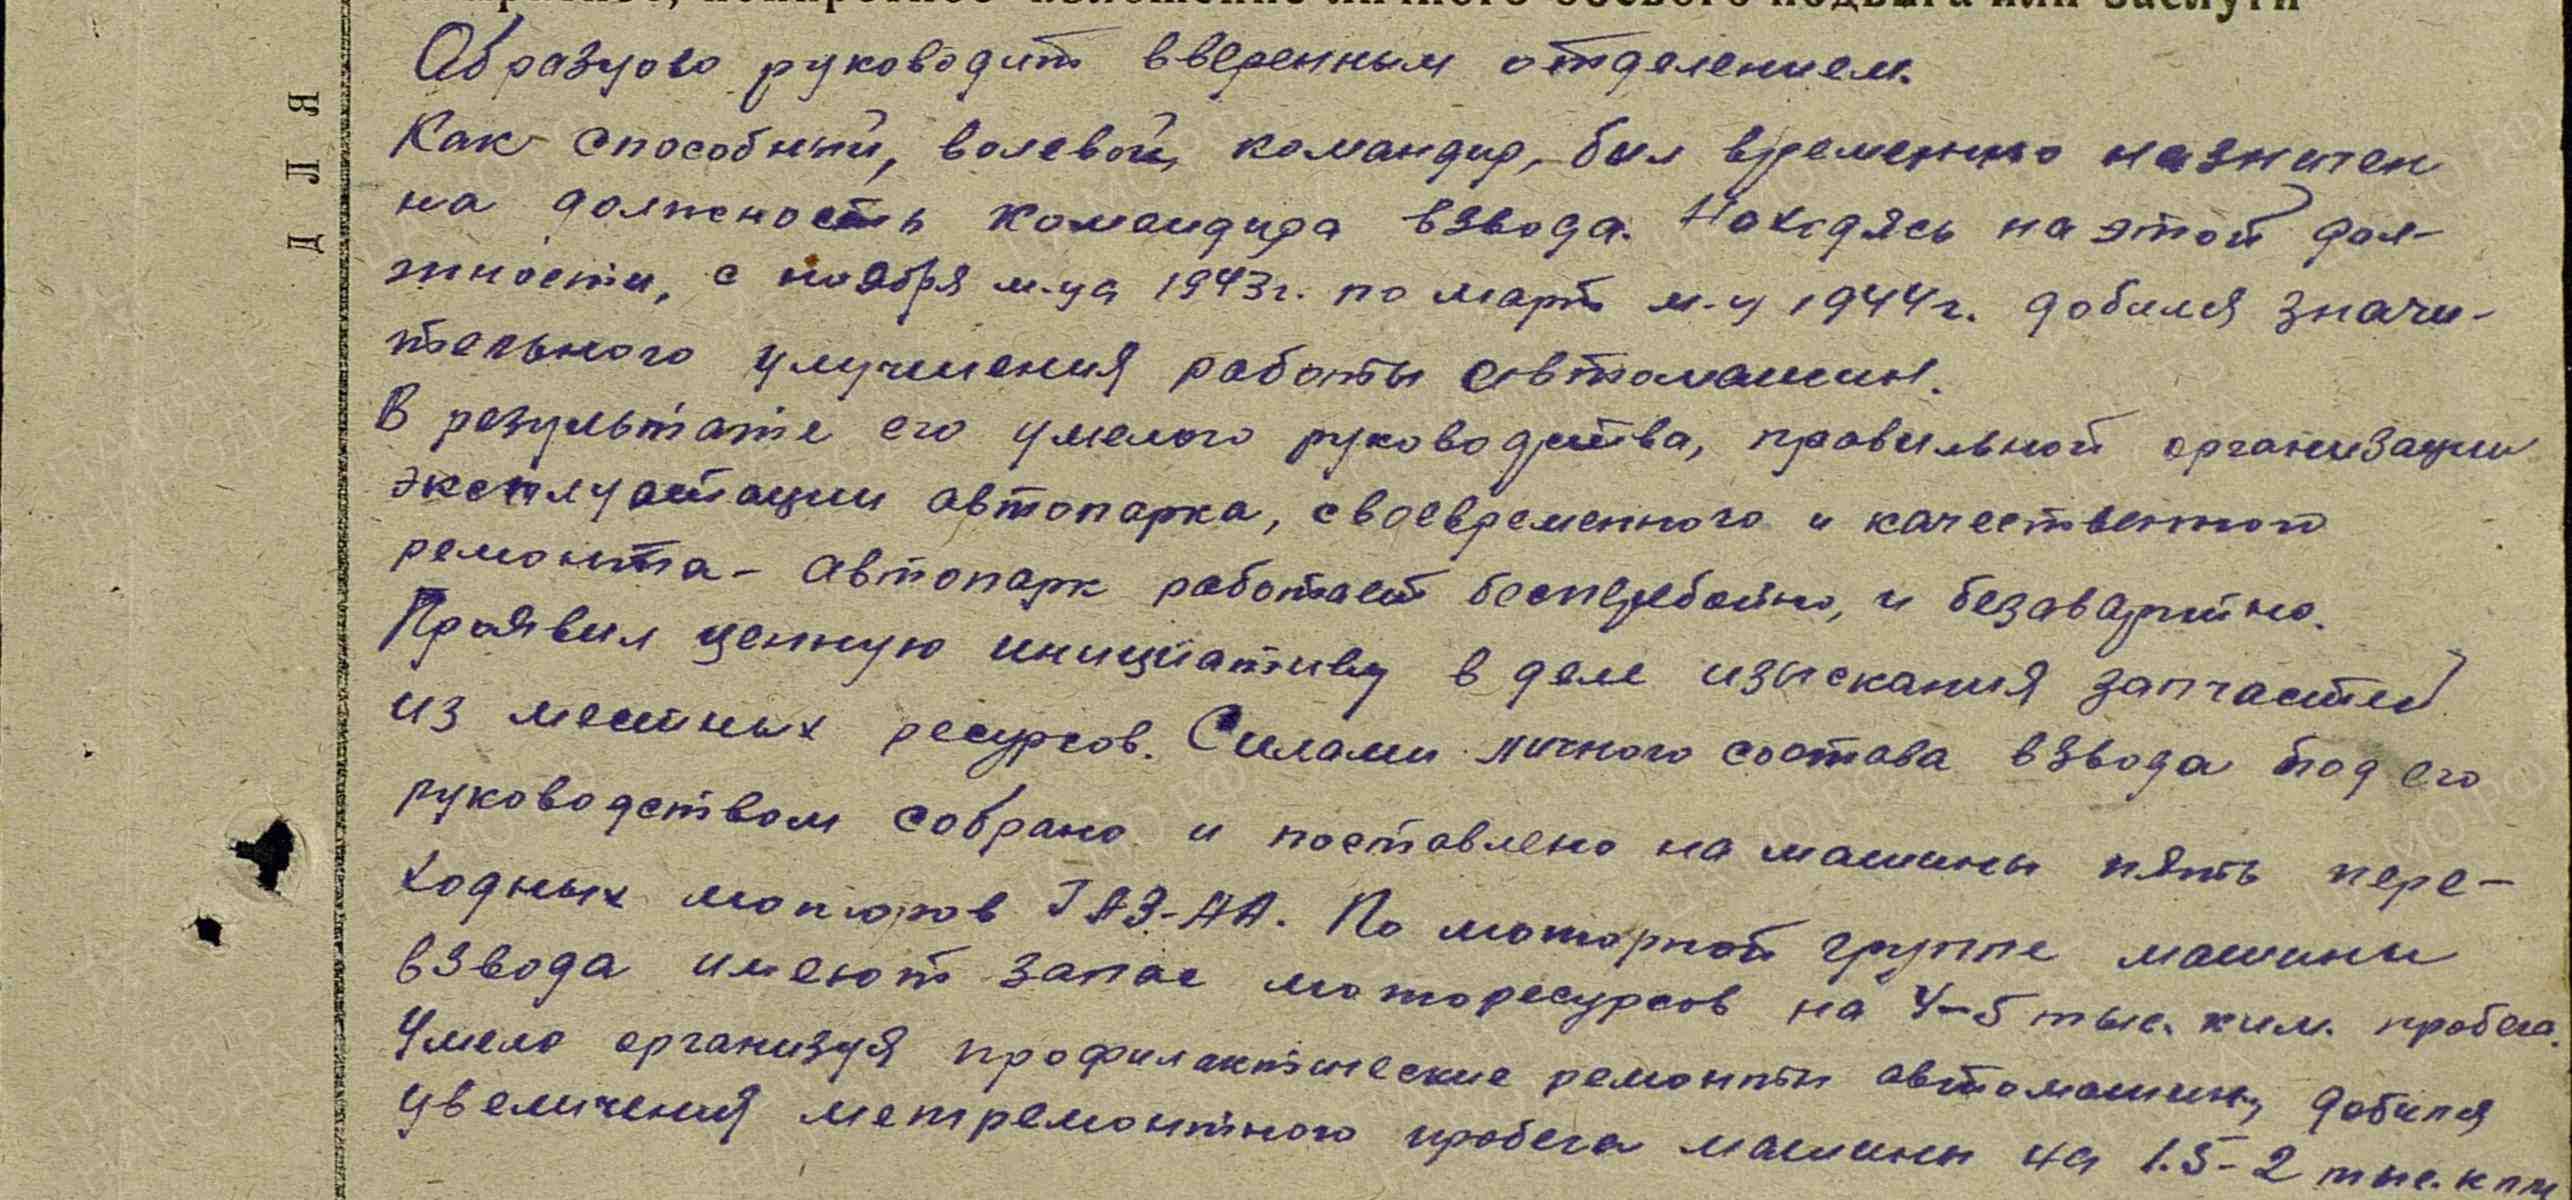 конкретное, конкретное изложение личного боевого подвига или заслуги
Образцово руководит вверенным отделением.
Как способный, волевой командир, был временно назначен
на должность командира взвода. Находясь на этой дол-
жности, с ноября м-ца 1943 г. по март м-ц 1944 г. добился значи-
тельного улучшения работы автомашин.
В результате его умелого руководства, правильной организации
эксплуатации автопарка, своевременного и качественного
ремонта - автопарк работает бесперебойно, и безаварийно.
Проявил ценную инициативу в деле изыскания запчастей
из местных ресурсов. Силами личного состава взвода под его
руководством собрано и поставлено на машины пять пере-
ходных моторов ГАЗ-АА. По моторной группе машины
взвода имеют запас моторесурсов на 4-5 тыс. клм. пробега.
Умело организуя профилактические ремонты автомашин, добился
увеличения межремонтного пробега машины на 1.5-2 тыс. клм
ДЛЯ